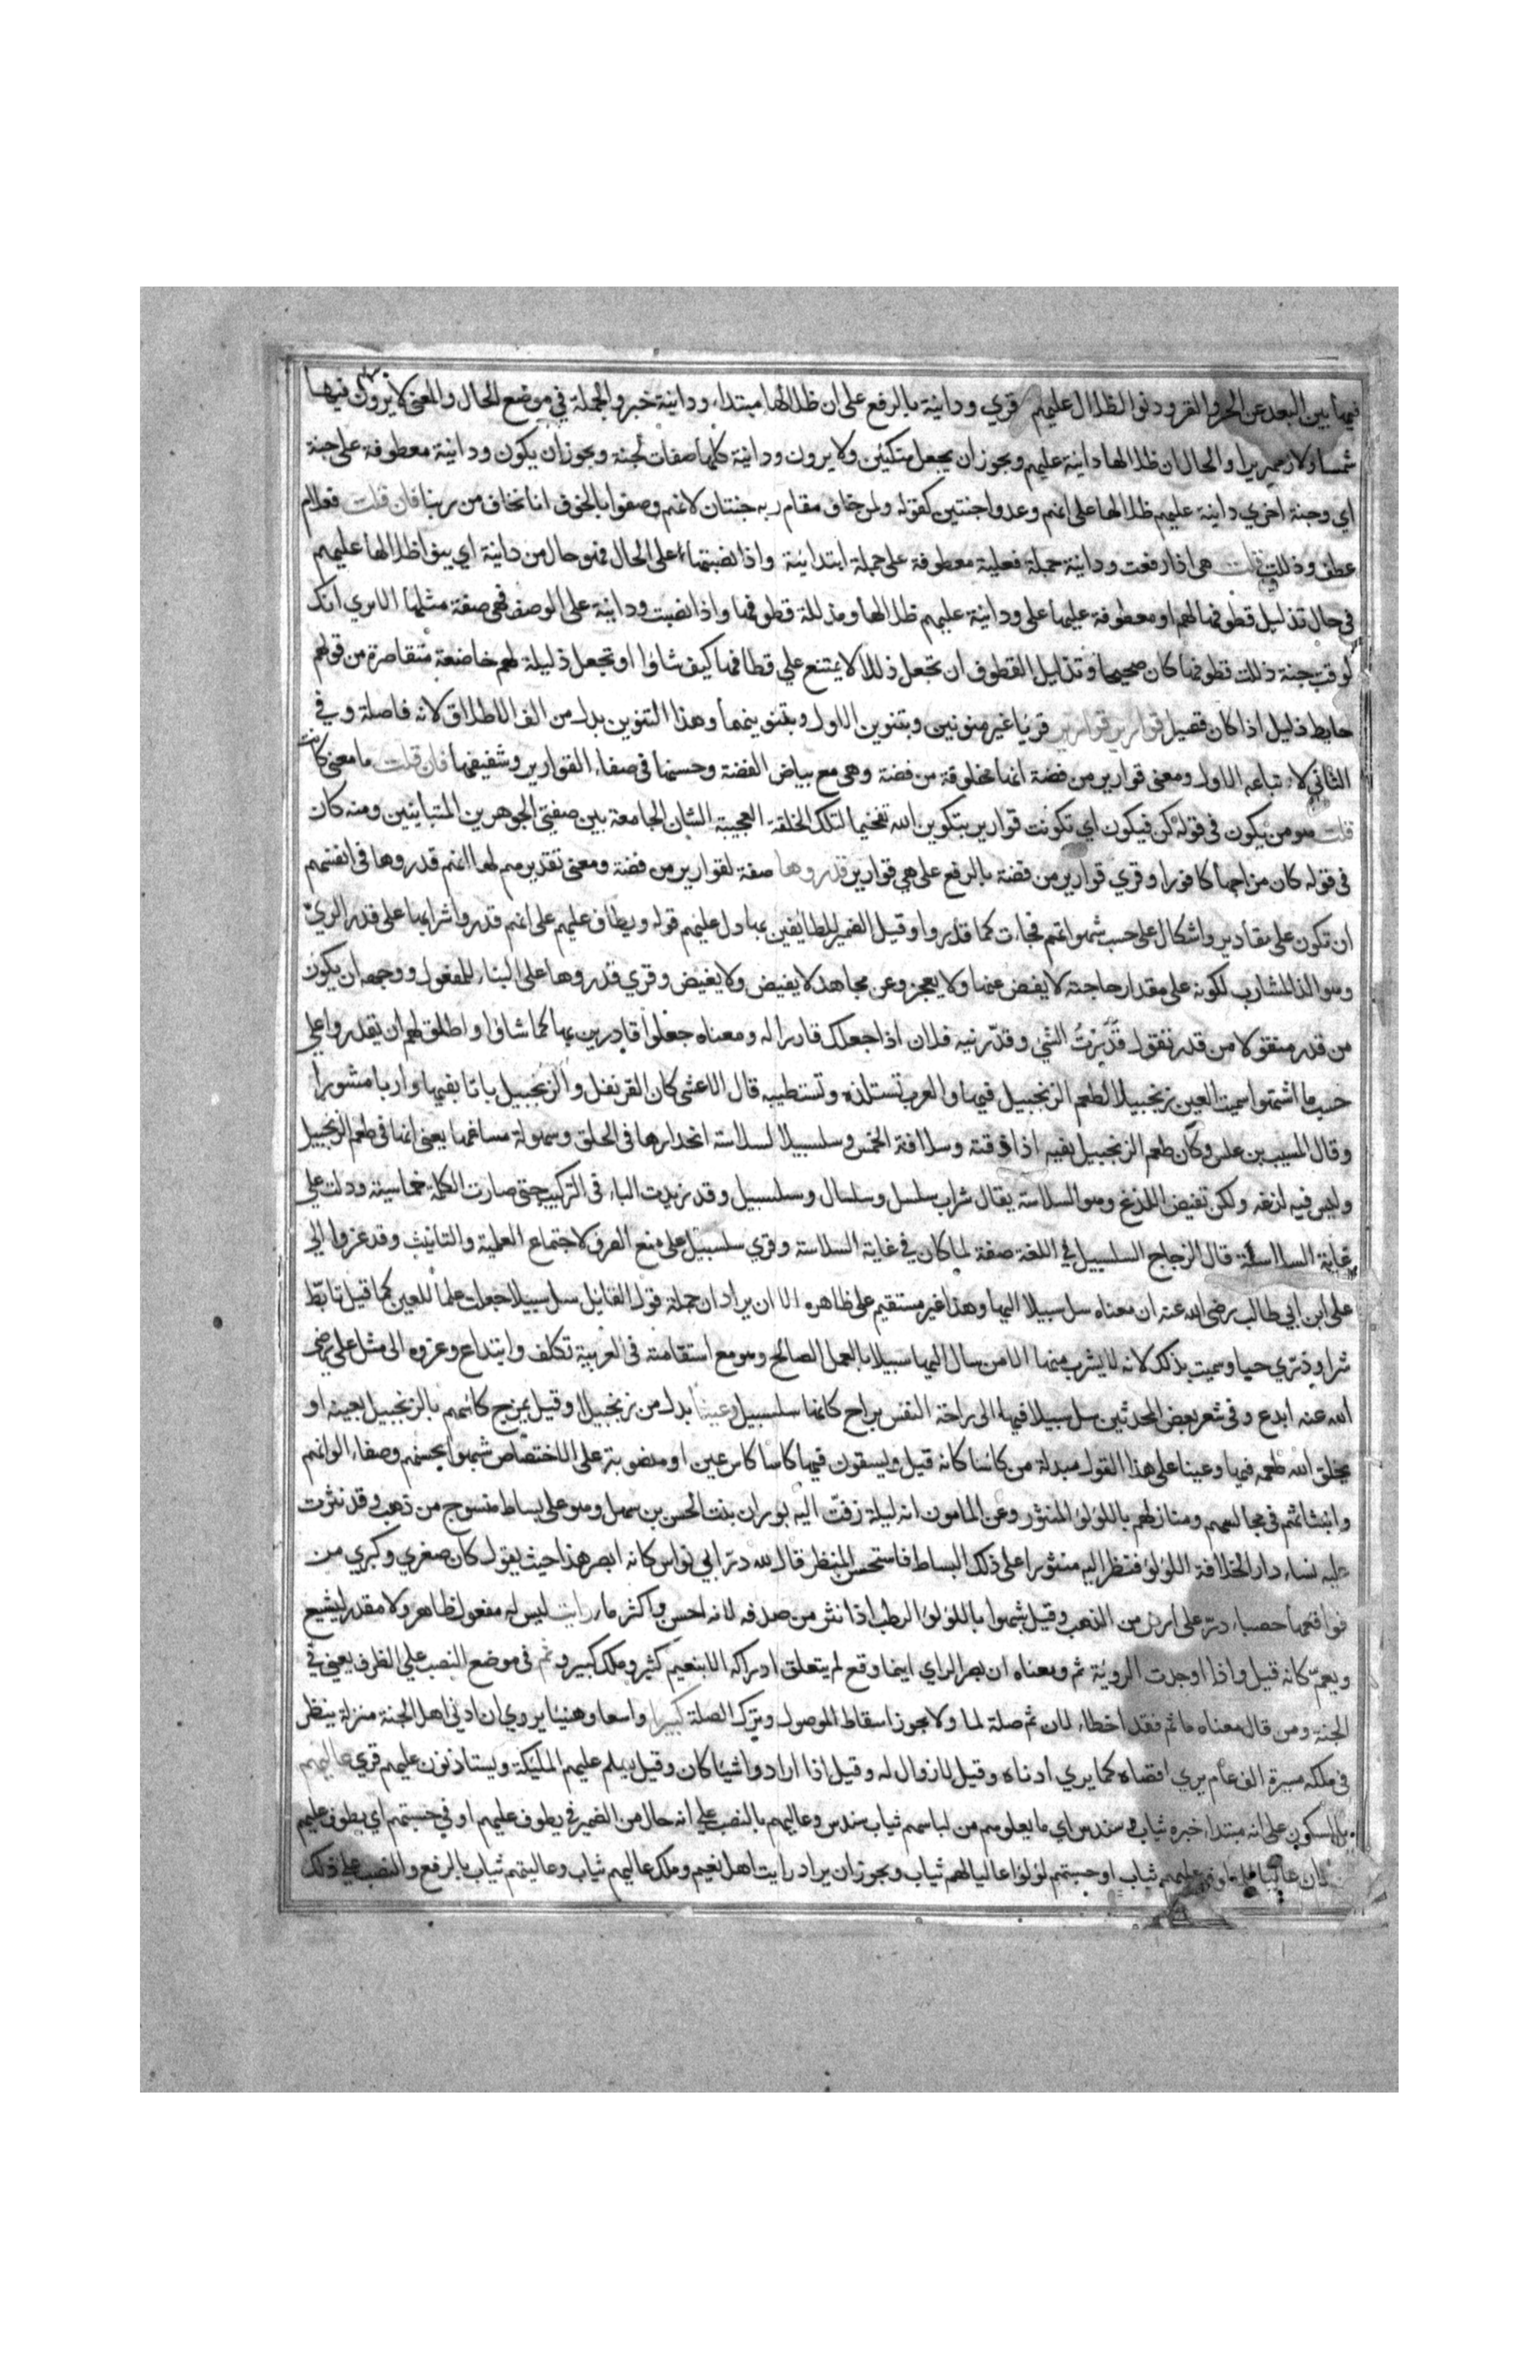 فيها بين البعد عن الحر والقر ودنو الظلال عليهم قري ودانية بالرفع على ان ظلالها مبتداء ودانية خبر والجملة في موضع الحال والمعنى لا يرون فيها
شمسا ولا زمهريرا والحال ان ظلالها دانية عليهم ويجوز ان يجعل متكئين ولا يرون ودانية كلها صفات لجنة ويجوز ان يكون ودانية معطوفة على جنة
اي وجنة اخري دانية عليهم ظلالها على انهم وعدوا جنتين كقوله ولمن خاف مقام ربه جنتان لانهم وصفوا بالخوف انا نخاف من ربنا فان قلت فعلام
عطف وذللت قلت هي اذا رفعت ودانية جملة فعلية معطوفة على جملة ابتدائية واذا نصبتها على الحال فهو حال من دانية اي يبقى اظلالها عليهم
في حال تذليل قطوفها لهم او معطوفة عليها على ودانية عليهم ظلالها ومذللة قطوفها واذا نصبت ودانية على الوصف فهي صفة مثلها الا تري انك
لو قلت جنة ذللت قطوفها كان صحيحا وتذليل القطوف ان تجعل ذللا لا يمتنع علي قطافها كيف شاؤا او تجعل ذليلة لهم خاضعة متقاصرة من قولهم
حايط ذليل اذا كان قصيرا قوارير قوارير قريا غير منونين وبتنوين الاول وبتنوينهما وهذا التنوين بدل من الف الاطلاق لانه فاصلة وفي
الثاني لا تباعه الاول ومعنى قوارير من فضة انها مخلوقة من فضة وهي مع بياض الفضة وحسنها في صفاء القوارير وشفيفها فان قلت ما معنى كانت
قلت هو من يكون في قوله كن فيكون اي تكونت قوارير بتكوين الله تفخيما لتلك الخلقة العجيبة الشان الجامعة بين صفتي الجوهرين المتباينين ومنه كان
في قوله كان مزاجها كافورا وقري قوارير من فضة بالرفع على هي قوارير قدروها صفة لقوارير من فضة ومعنى تقديرهم لها انهم قدروها في انفسهم
ان تكون على مقادير واشكال على حسب شهواتهم فجاءت كما قدروا وقيل الضمير للطايفين بها دل عليهم قوله ويطاف عليهم على انهم قدروا شرابها على قدر الري
وهو الذ للشارب لكونه على مقدار حاجته لا يفضل عنها ولا يعجز وعن مجاهد لا يفيض ولا يغيض وقري قدروها على البناء للمفعول ووجهه ان يكون
من قدر منقولا من قدر تقول قدرت الشي وقدرنيه فلان اذا جعلك قادرا له ومعناه جعلوا قادرين بها كما شاؤا واطلق لهم ان يقدروا علي
حسب ما اشتهوا سميت العين زنجبيلا لطعم الزنجبيل فيها والعرب تستلذه وتستطيبه قال الاعشى كان القرنفل والزنجبيل باتا بفيها واريا مشورا
وقال المسيب بن علس وكان طعم الزنجبيل بفيه اذا ذقته وسلافة الخمر وسلسبيلا لسلاسة انحدارها في الحلق وسهولة مساغها يعني انها في طعم الزنجبيل
وليس فيه لذعه ولكن نقيض اللذع وهو السلاسة يقال شراب سلسل وسلسال وسلسبيل وقد زيدت الباء في التركيب حتى صارت الكلمة خماسية ودلت علي
غاية السلاسة قال الزجاج السلسبيل في اللغة صفة لما كان في غاية السلاسة وقري سلسبيل على منع الصرف لاجتماع العلمية والتانيث وقد عزوا الي
علي ابن ابي طالب رضي الله عنه ان معناه سل سبيلا اليها وهذا غير مستقيم على ظاهره الا ان يراد ان جملة قول القائل سل سبيلا جعلت علما للعين كما قيل تابط
شرا وذري حبا وسميت بذلك لانه لا يشرب منها الا من سال اليها سبيلا بالعمل الصالح وهو مع استقامته في العربية تكلف وابتداع وعزوه الى مثل علي رضي
الله عنه ابدع وفي شعر بعض المحدثين سل سبيلا فيها الى راحة النفس براح كانها سلسبيل وعينا بدل من زنجبيلا وقيل يمزج كاسهم بالزنجبيل بعينه او
يخلق الله طعمه فيها وعينا على هذا القول مبدلة من كاسا كانه قيل ويسقون فيها كاسا كاس عين او منصوبة على الاختصاص شبهوا بحسنهم وصفاء الوانهم
وانبثاثهم في مجالسهم ومنازلهم باللولو المنثور وعن المامون انه ليلة زفت اليه بوران بنت الحسن بن سهل وهو على بساط منسوج من ذهب وقد نثرت
عليه نساء دار الخلافة اللولو فنظر اليه منثورا على ذلك البساط فاستحسن المنظر قال لله در ابي نواس كانه ابصر هذا حيث يقول كان صغري وكبري من
فواقعها حصباء در على ارض من الذهب وقيل شبهوا باللولو الرطب اذا نثر من صدفه لانه احسن واكثر ماء رايت ليس له مفعول ظاهر ولا مقدر ليشيع
ويعم كانه قيل واذا اوجدت الروية ثم ومعناه ان بصر الراي اينما وقع لم يتعلق ادراكه الا بنعيم كثير وملك كبير وثم في موضع النصب علي الظرف يعني في
الجنة ومن قال معناه ما ثم فقد اخطاء لان ثم صلة لما ولا يجوز اسقاط الموصول وترك الصلة كبيرا واسعا وهنيئا يروي ان ادنى اهل الجنة منزلة ينظر
في ملكه مسيرة الف عام يري اقصاه كما يري ادناه وقيل لا زوال له وقيل اذا ارادوا شيئا كان وقيل يسلم عليهم المليكة ويستاذنون عليهم قري عاليهم
بالسكون على انه مبتدا خبره ثياب سندس اي ما يعلوهم من لباسهم ثياب سندس وعاليهم بالنصب علي انه حال من الضمير في يطوف عليهم او في حسبتهم اي يطوف عليهم
ثياب او حسبتهم لؤلؤا عاليا لهم ثياب ويجوز ان يراد رايت اهل نعيم وملك عاليهم ثياب وعاليتهم ثياب بالرفع والنصب علي ذلك